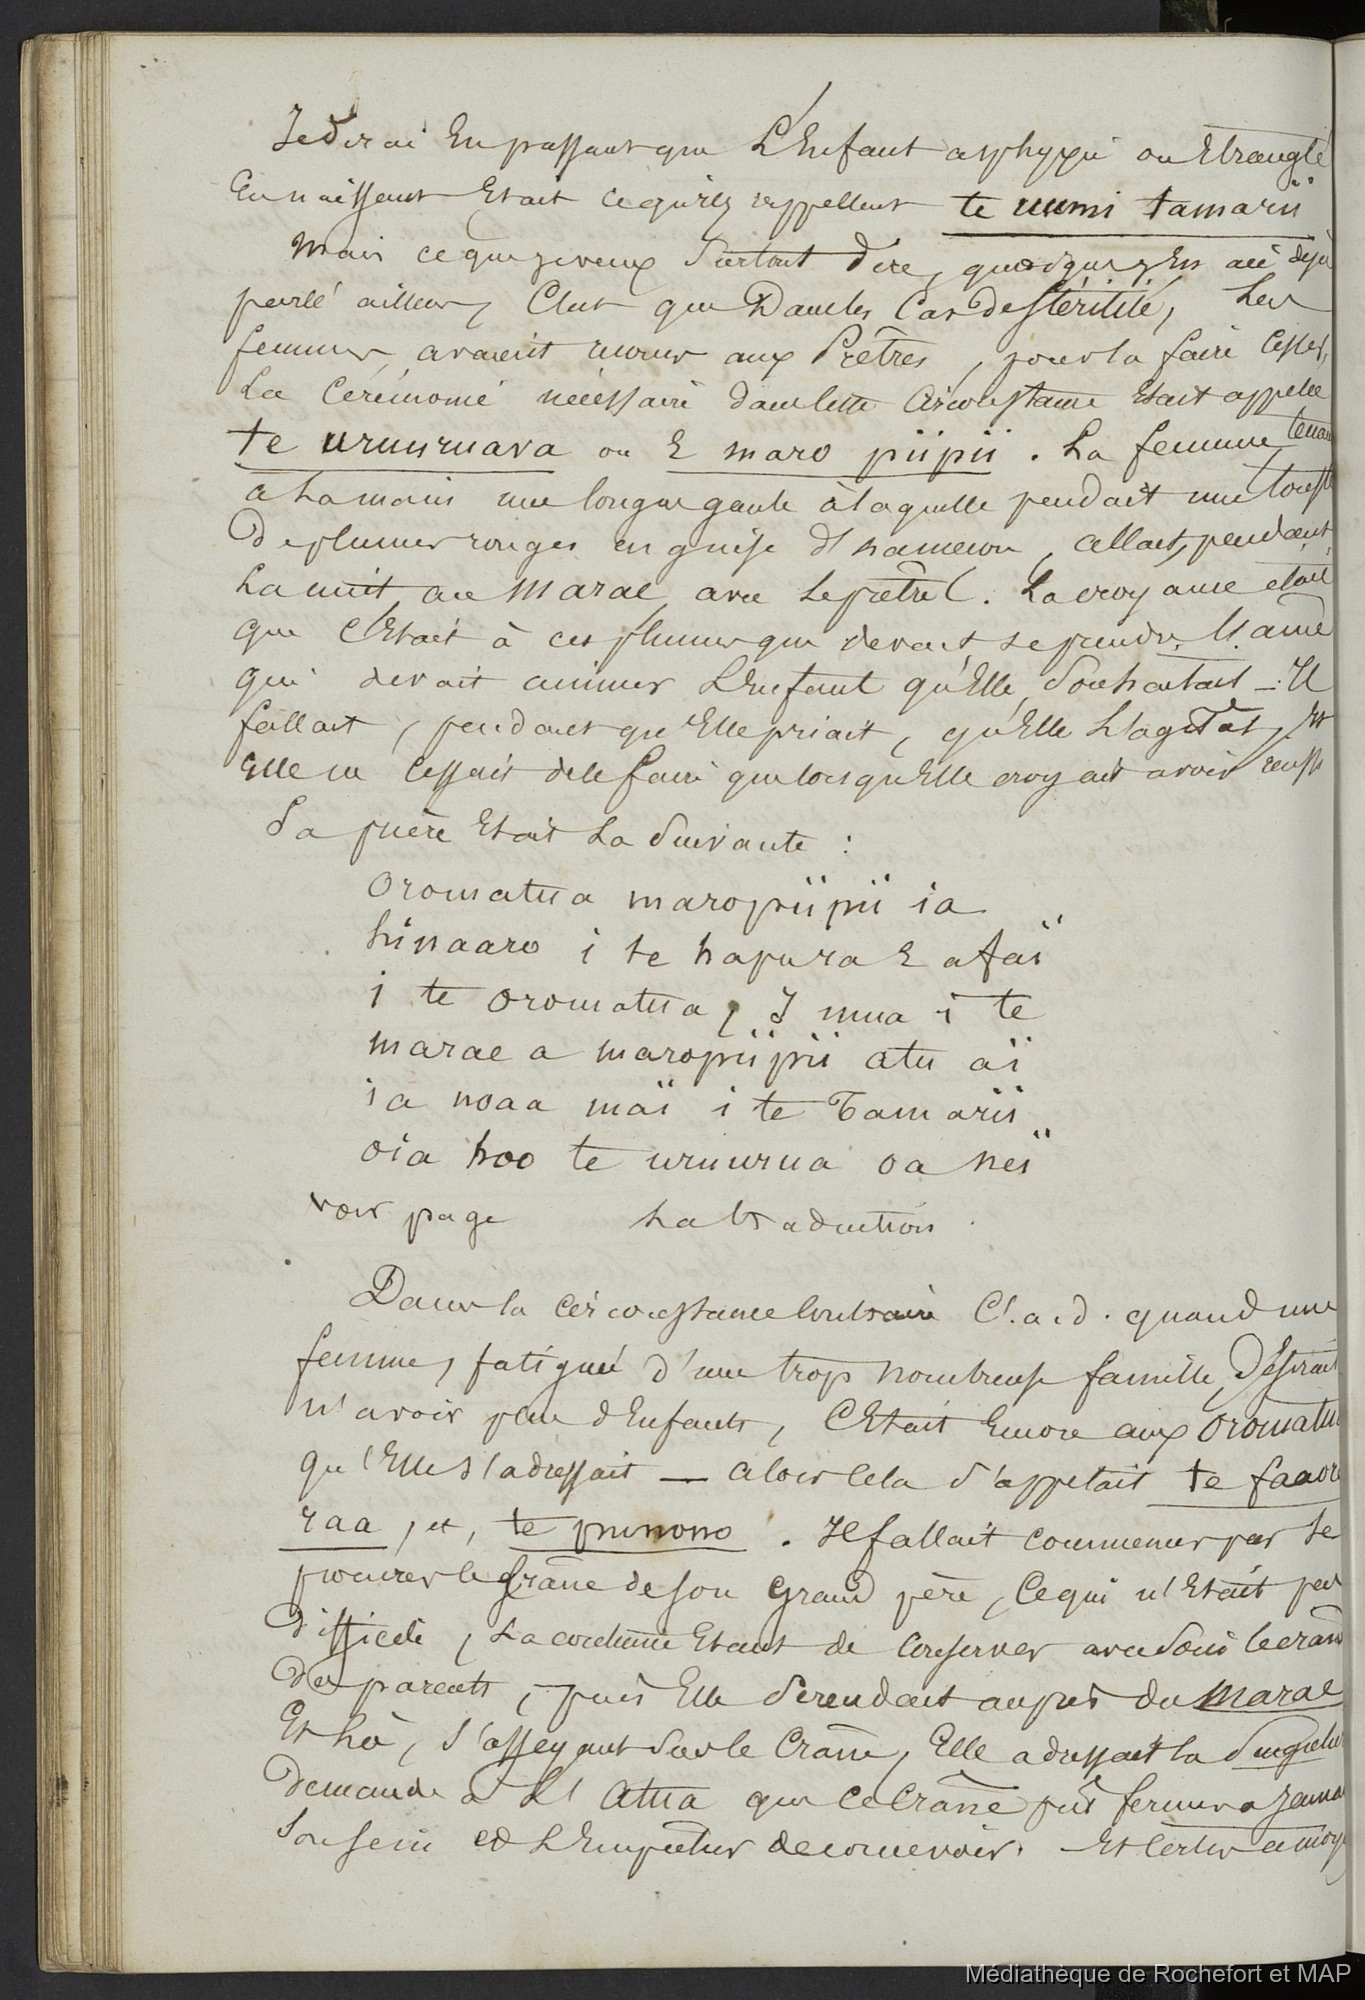 Je dirai En passant que L'Enfant asphyxié ou Etranglé
En naissant Etait ce qu'ils appellent te uumi tamarii
Mais ce que je veux Surtout dire, quoique j'En aie déjà
parlé ailleurs, C'est que Dans les Cas de stérilité, Les
femmes avaient recours aux Prêtres, pour la faire Cesser,
La Cérémonie nécessaire dans cette Circonstance Etait appelée
te uruuruava ou E maro piipii. La femme tenant
a La main une longue gaule à laquelle pendait une touffe
De plumes rouges en guise d'hameçon, allait, pendant
La nuit au Marae avec Le prêtre. La croyance était
que C'Etait à ces plumes que devait se prendre L'ame
qui devait animer L'Enfant qu'Elle Souhaitait — Il
fallait, pendant qu'Elle priait, qu'Elle L'agitât, Et
Elle ne Cessait de le faire que lorsqu'Elle croyait avoir reussi
Sa prière Etait La Suivante :
Oromatua maropiipii ia
hinaaro i te hapura E afaï
i te oromatua, I mua i te
marae a maropiipii atu aï
ia noaa maï i te Tamarii
oia hoo te uruurua oa neï
voir page La traduction.
Dans la Circonstance Contraire C'.a.d. quand une
femme, fatiguée d'une trop nombreuse famille, Désirait
n'avoir plus d'Enfants, C'Etait Encore aux Oromatua
qu'Elle s'adressait — alors Cela S'appelait te faaore
raa, et, te punono. Il fallait commencer par Se
procurer le Crâne de son Grand père, Ce qui n'Etait pas
Difficile, La coutume Etant de Conserver avec Soin le crâne
Des parents, puis Elle Se rendait auprès du Marae
Et Là, S'asseyant Sur le Crâne, Elle adressait la Singulière
Demande à L'Atua que Ce Crâne pût fermer a Jamais
Son sein et L'Empêcher de concevoir. Et Certes a moy
Médiathèque de Rochefort et MAP